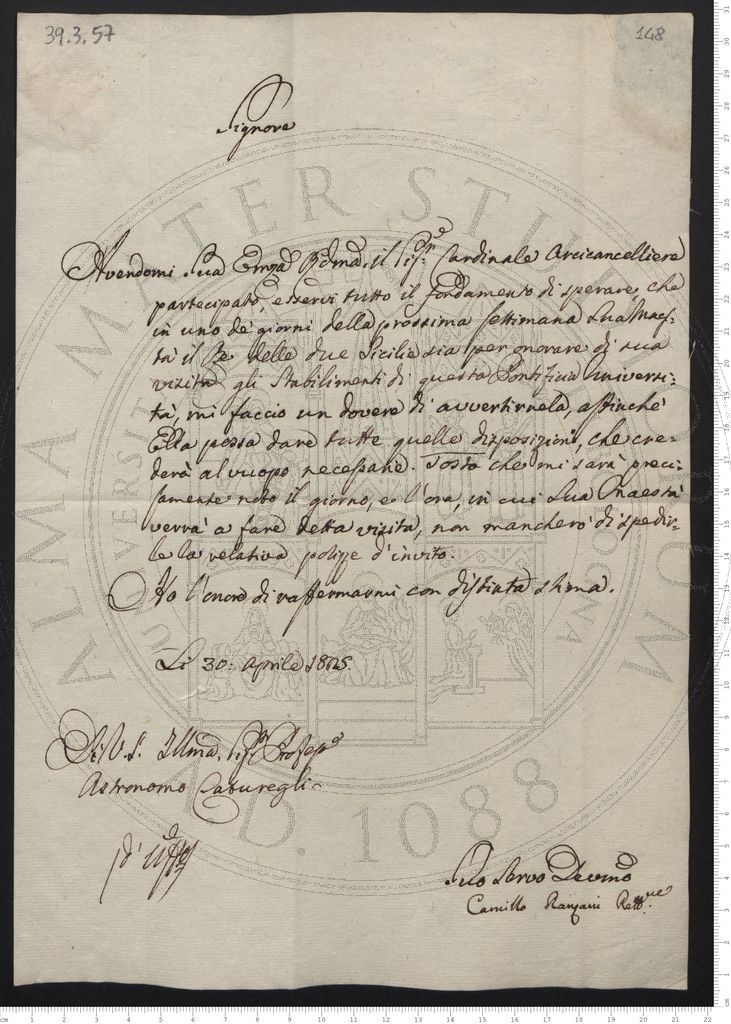 39.3.57
148
Signore
Avendomi Sua Emza Rdma, il Sigre Cardinale Arcicancelliere
partecipato, esservi tutto il fondamento di sperare, che
in uno de' giorni della prossima settimana Sua Maes-
tà il Re delle due Sicilie sia per onorare di sua
visita gli Stabilimenti di questa Pontificia Universi-
tà, mi faccio un dovere di avvertirnela, affinchè
Ella possa dare tutte quelle disposizioni, che cre-
derà al vuopo necessarie. Tosto che mi sarà preci-
samente noto il giorno, e l'ora, in cui Sua Maestà
verrà a fare detta visita, non mancherò di spedir-
le la relativa polizze d'invito.
Ho l'onore di raffermarmi con distinta stima.
Li 30: Aprile 1825
Di V. S. Illma. Sigr Professe
Astronomo Caturegli
d' Uffo
Suo Servo Devmo
Camillo Ranzani Rettre
ALMA MATER STUDIORUM
A.D. 1088